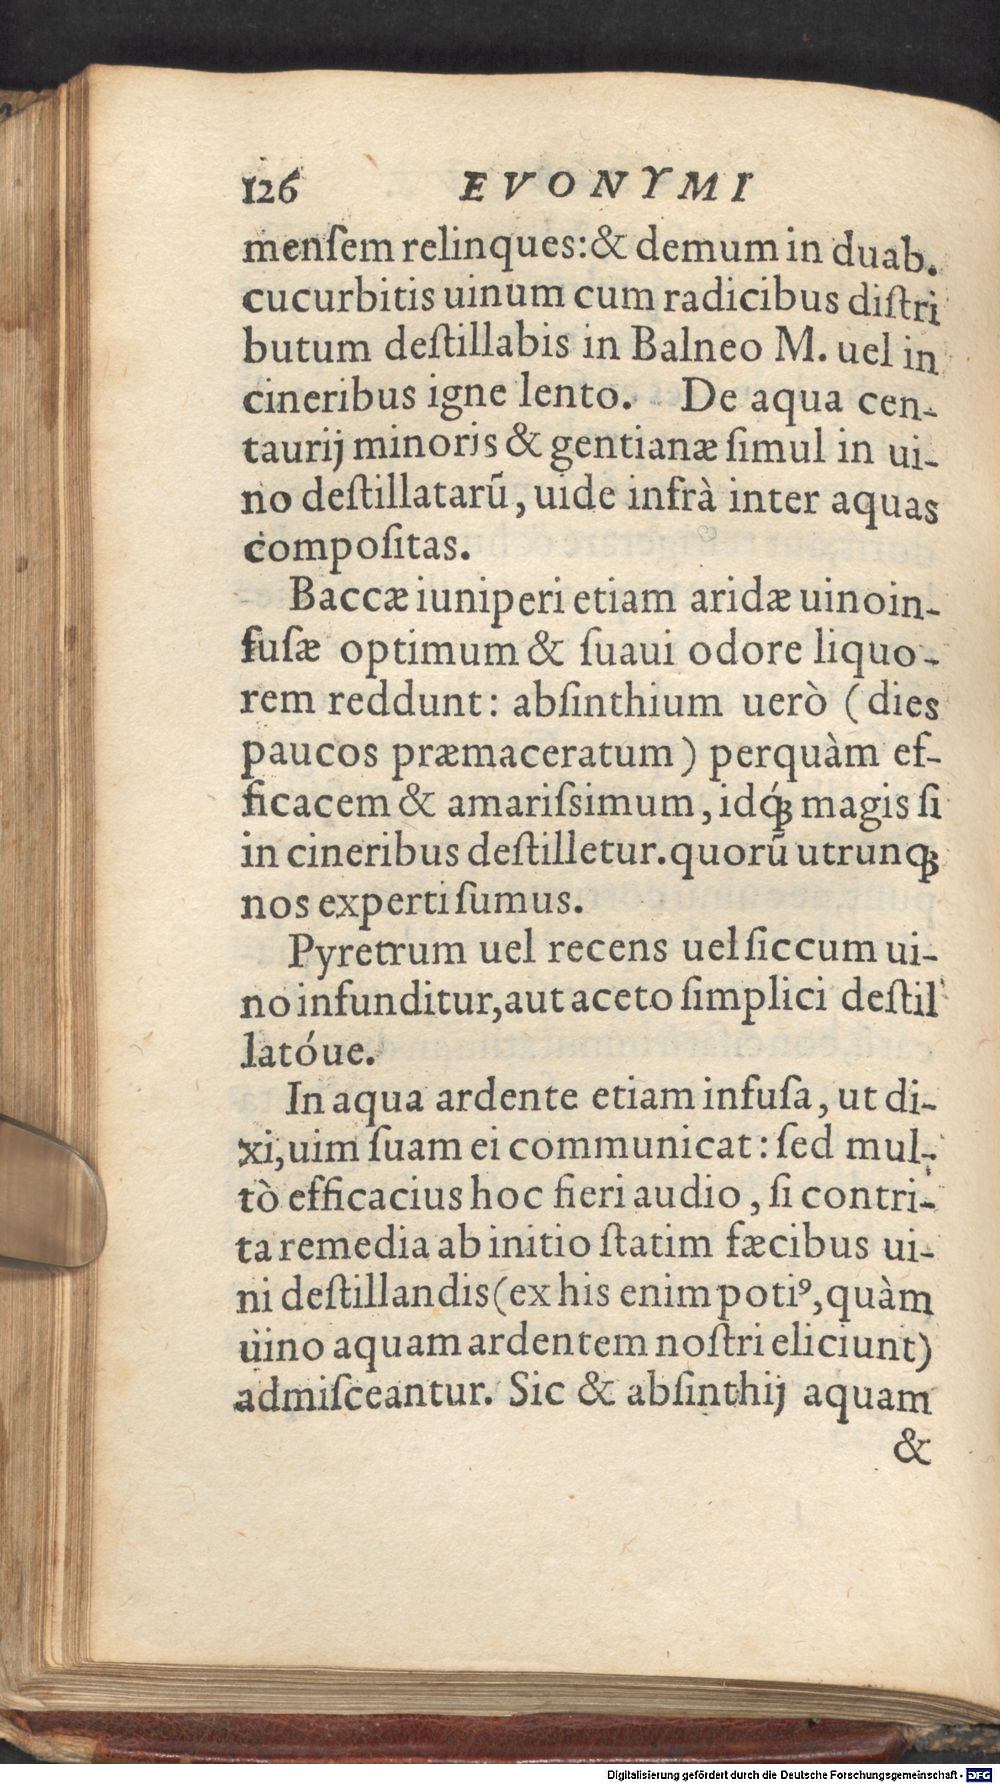 126 EVONYMI
menſem relinques:& demum in duab.
cucurbitis uinum cum radicibus diſtri
butum deſtillabis in Balneo M. uel in
cineribus igne lento. De aqua cen-
taurij minoris & gentianæ ſimul in ui-
no deſtillatarũ, uide infrà inter aquas
compoſitas.
Baccæ iuniperi etiam aridæ uino in-
fuſæ optimum & ſuaui odore liquo-
rem reddunt: abſinthium uerò (dies
paucos præmaceratum) perquàm ef-
ficacem & amariſsimum, idq́ꝫ magis ſi
in cineribus deſtilletur. quorũ utrunqꝫ
nos experti ſumus.
Pyretrum uel recens uel ſiccum ui-
no infunditur, aut aceto ſimplici deſtil
latóue.
In aqua ardente etiam infuſa, ut di-
xi, uim ſuam ei communicat: ſed mul-
tò efficacius hoc fieri audio, ſi contri-
ta remedia ab initio ſtatim fæcibus ui-
ni deſtillandis (ex his enim potiꝰ, quàm
uino aquam ardentem noſtri eliciunt)
admiſceantur. Sic & abſinthij aquam
&
Digitalisierung gefördert durch die Deutsche Forschungsgemeinschaft - DFG